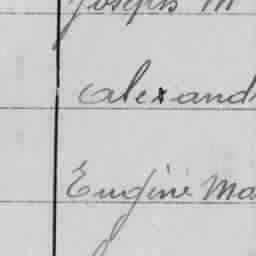 Joseph M
Alexand
Eugine Ma